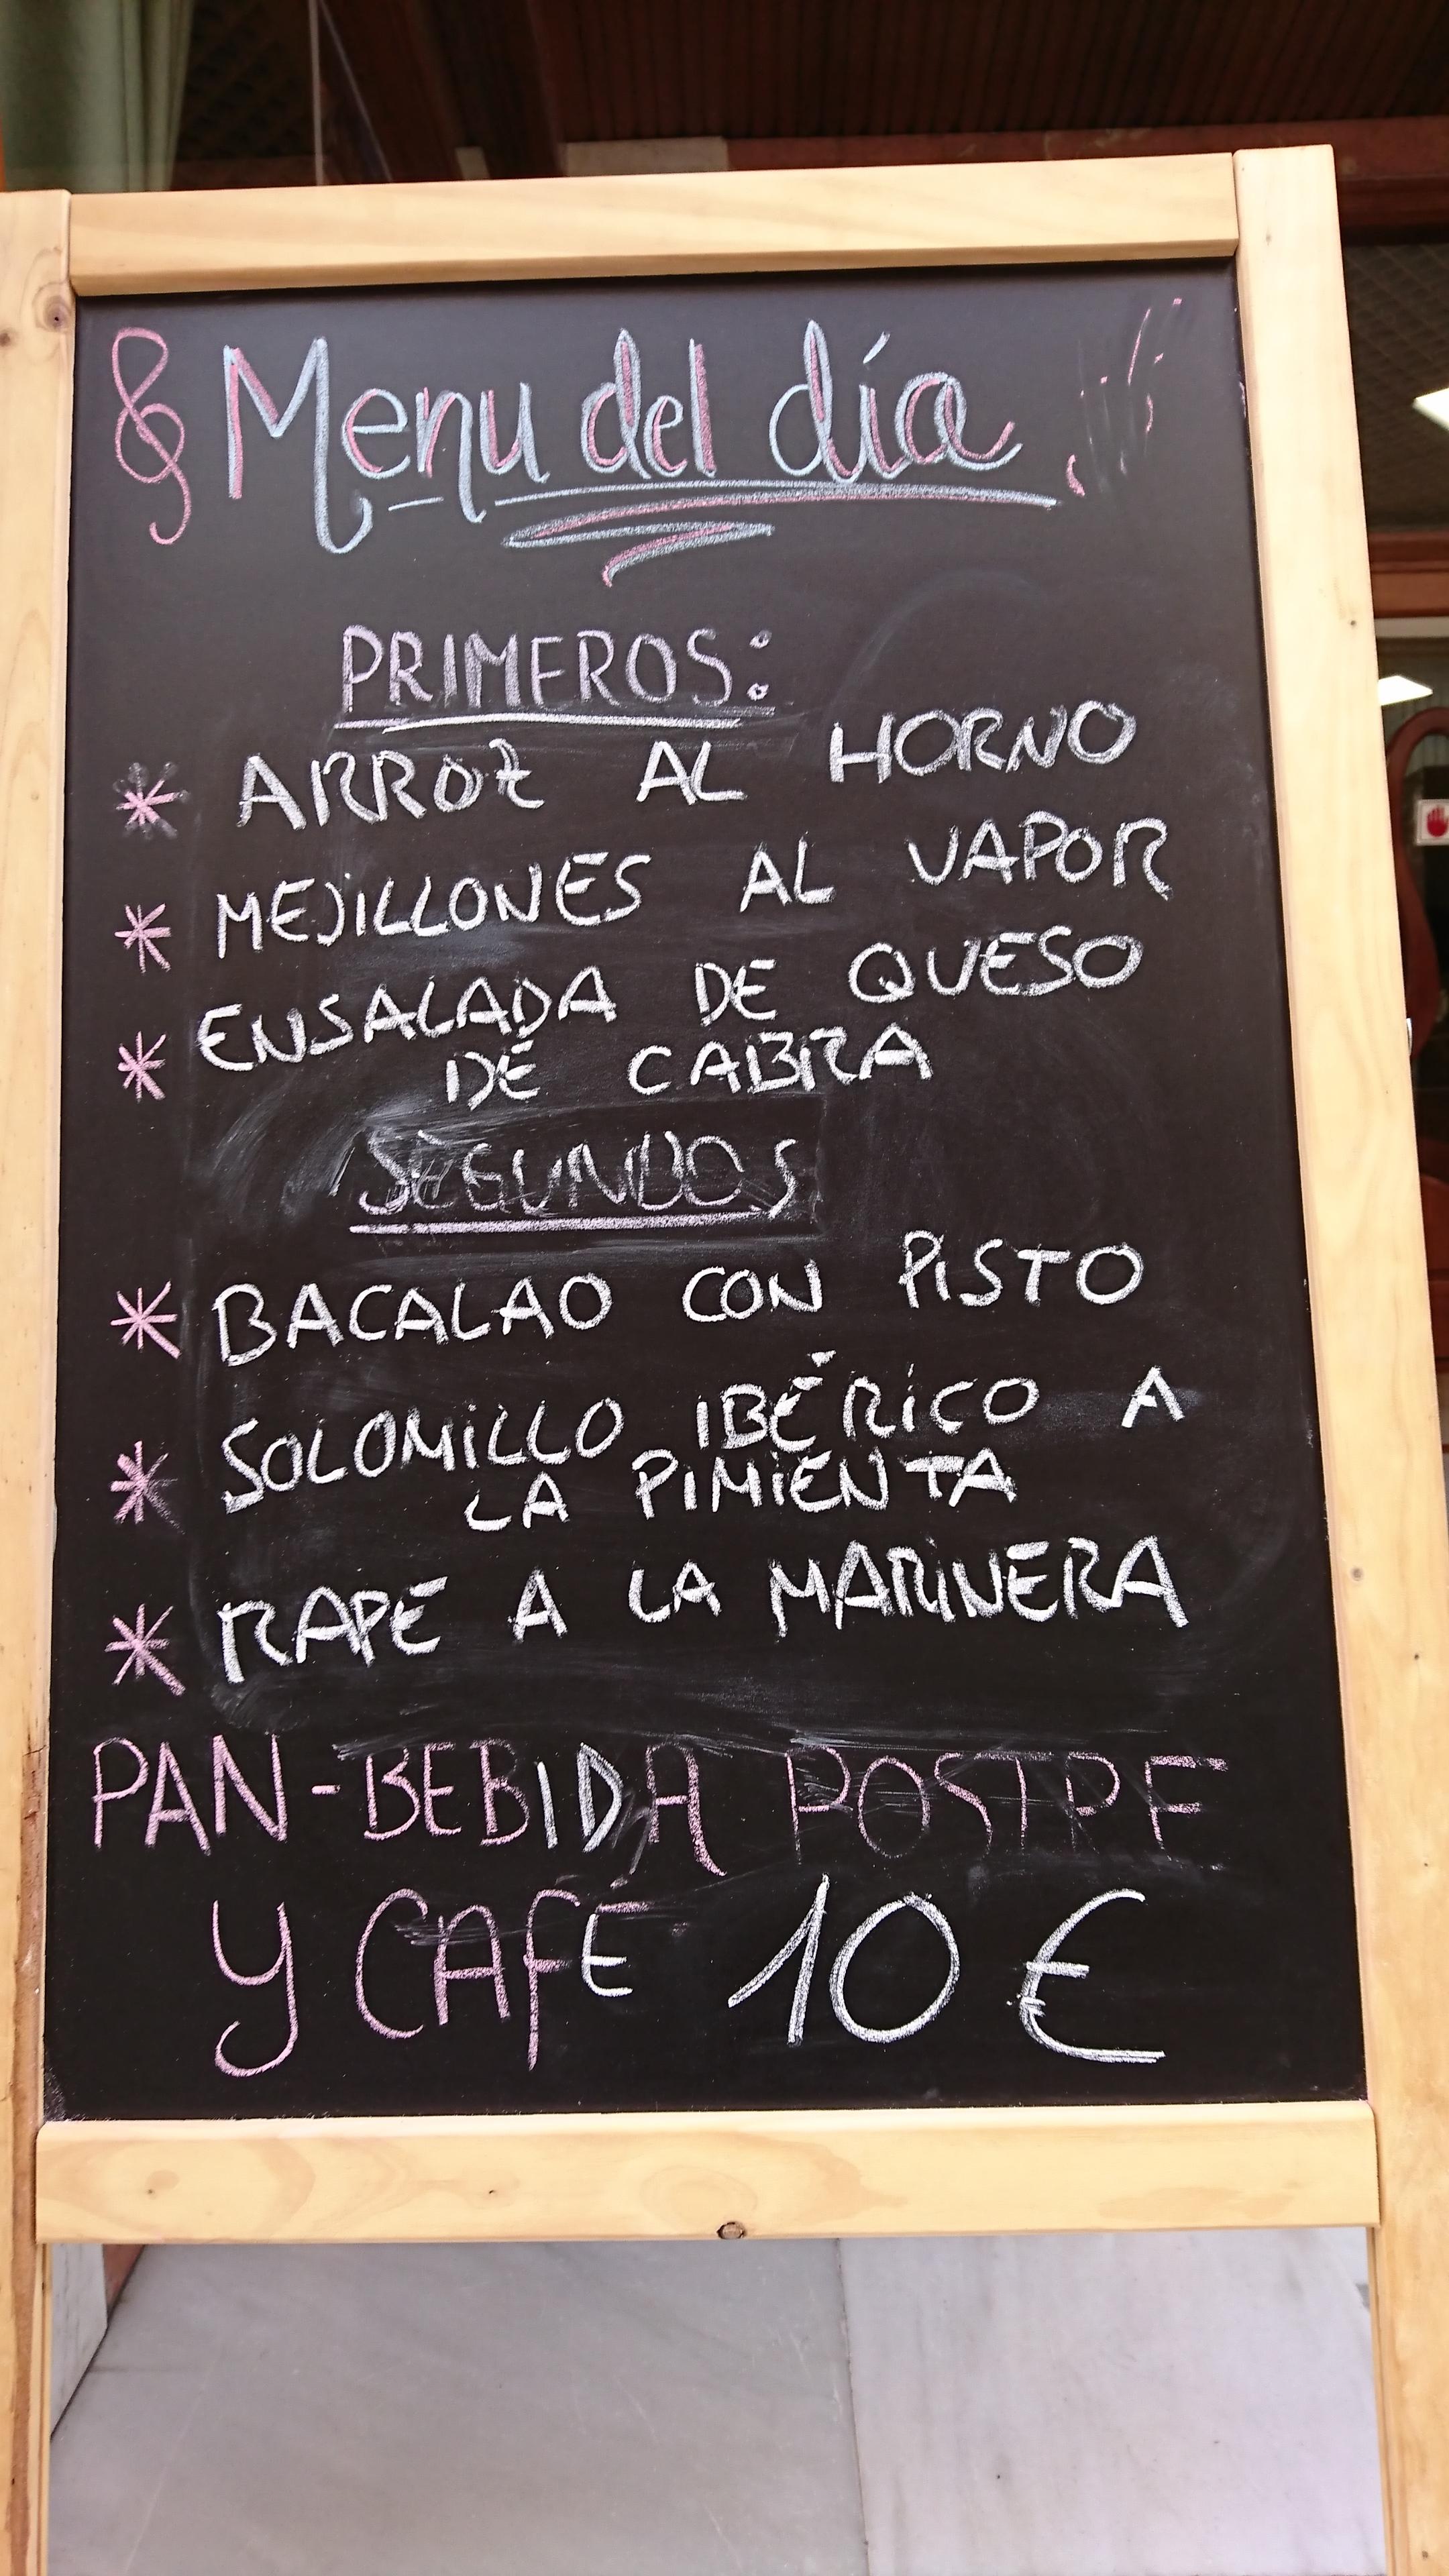 Menu del día
PRIMEROS:
* ARROZ AL HORNO
* MEJILLONES AL VAPOR
* ENSALADA DE QUESO
DE CABRA
SEGUNDOS
* BACALAO CON PISTO
* SOLOMILLO IBÉRICO A
LA PIMIENTA
* RAPE A LA MARINERA
PAN-BEBIDA POSTRE
Y CAFÉ 10€